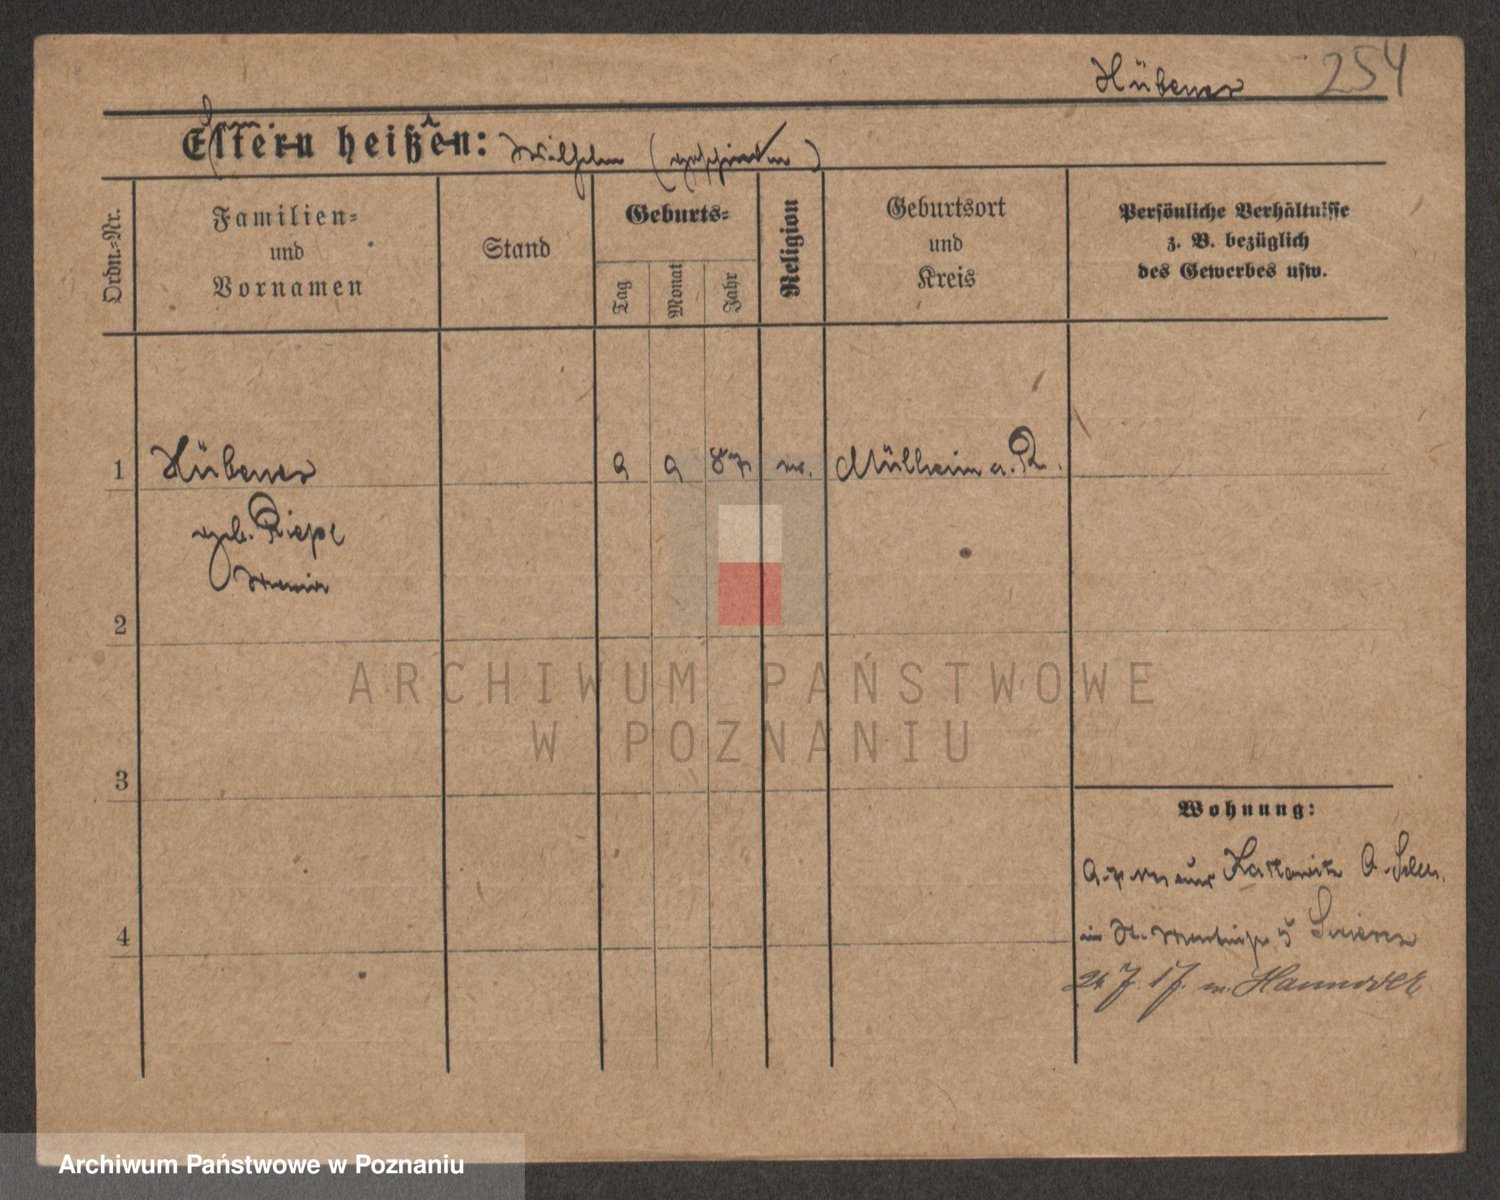 Hübener 254
Eltern heißen: Wilhelm (geschieden)
Ordn.-Nr.
Familien-
und
Vornamen
Stand
Geburts-
Tag
Monat
Jahr
Religion
Geburtsort
und
Kreis
Persönliche Verhältnisse
z. B. bezüglich
des Gewerbes usw.
1 Hübener 9 9 87 Mülheim a. R.
geb. Riepe
2
3
4
Wohnung:
Kattowitz O. Schles.
in St. 5
24. 7. 17. n. Hannover
ARCHIWUM PAŃSTWOWE
W POZNANIU
Archiwum Państwowe w Poznaniu